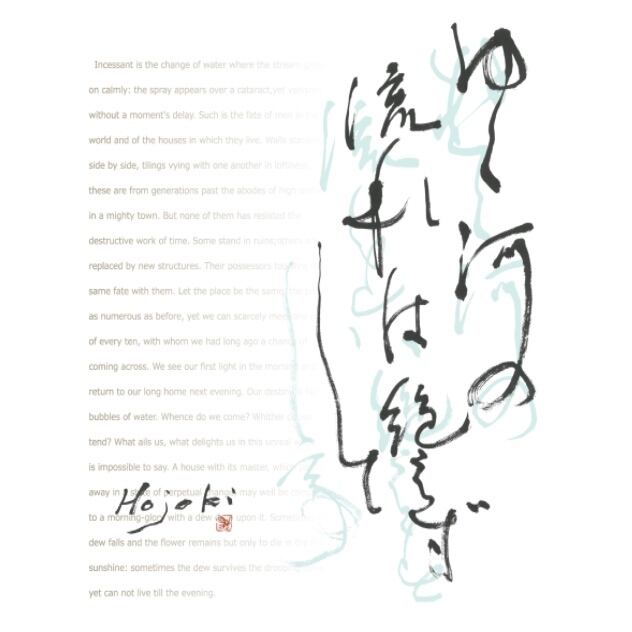 ゆく河の
流れは絶えず
して
Incessant is the change of water where the stream
on calmly: the spray appears over a cataract,yet
without a moment's delay. Such is the fate of men in the
world and of the houses in which they live. Walls
side by side, tilings vying with one another in loftiness,
these are from generations past the abodes of high
in a mighty town. But none of them has resisted the
destructive work of time. Some stand in ruins;others
replaced by new structures. Their possessors too
same fate with them. Let the place be the same, the
as numerous as before, yet we can scarcely meet one
of every ten, with whom we had long ago a chance of
coming across. We see our first light in the morning and
return to our long home next evening. Our destiny
bubbles of water. Whence do we come? Whither do we
tend? What ails us, what delights us in this unreal
is impossible to say. A house with its master, which
away in a state of perpetual change, may well be
to a morning-glory with a dew drop upon it. Sometimes
dew falls and the flower remains but only to die in the
sunshine: sometimes the dew survives the drooping
yet can not live till the evening.
Hojoki